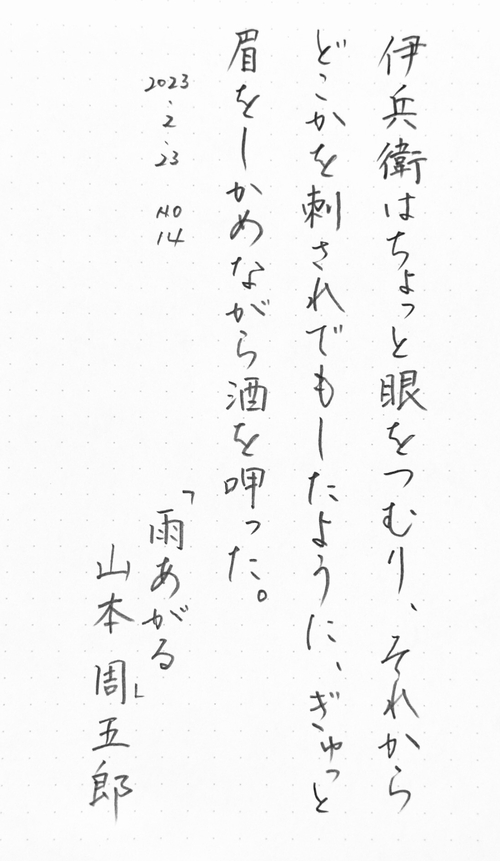 伊兵衛はちょっと眼をつむり、それから
どこかを刺されでもしたように、ぎゅっと
眉をしかめながら酒を呷った。
2023.2.23 NO 14
「雨あがる」
山本周五郎